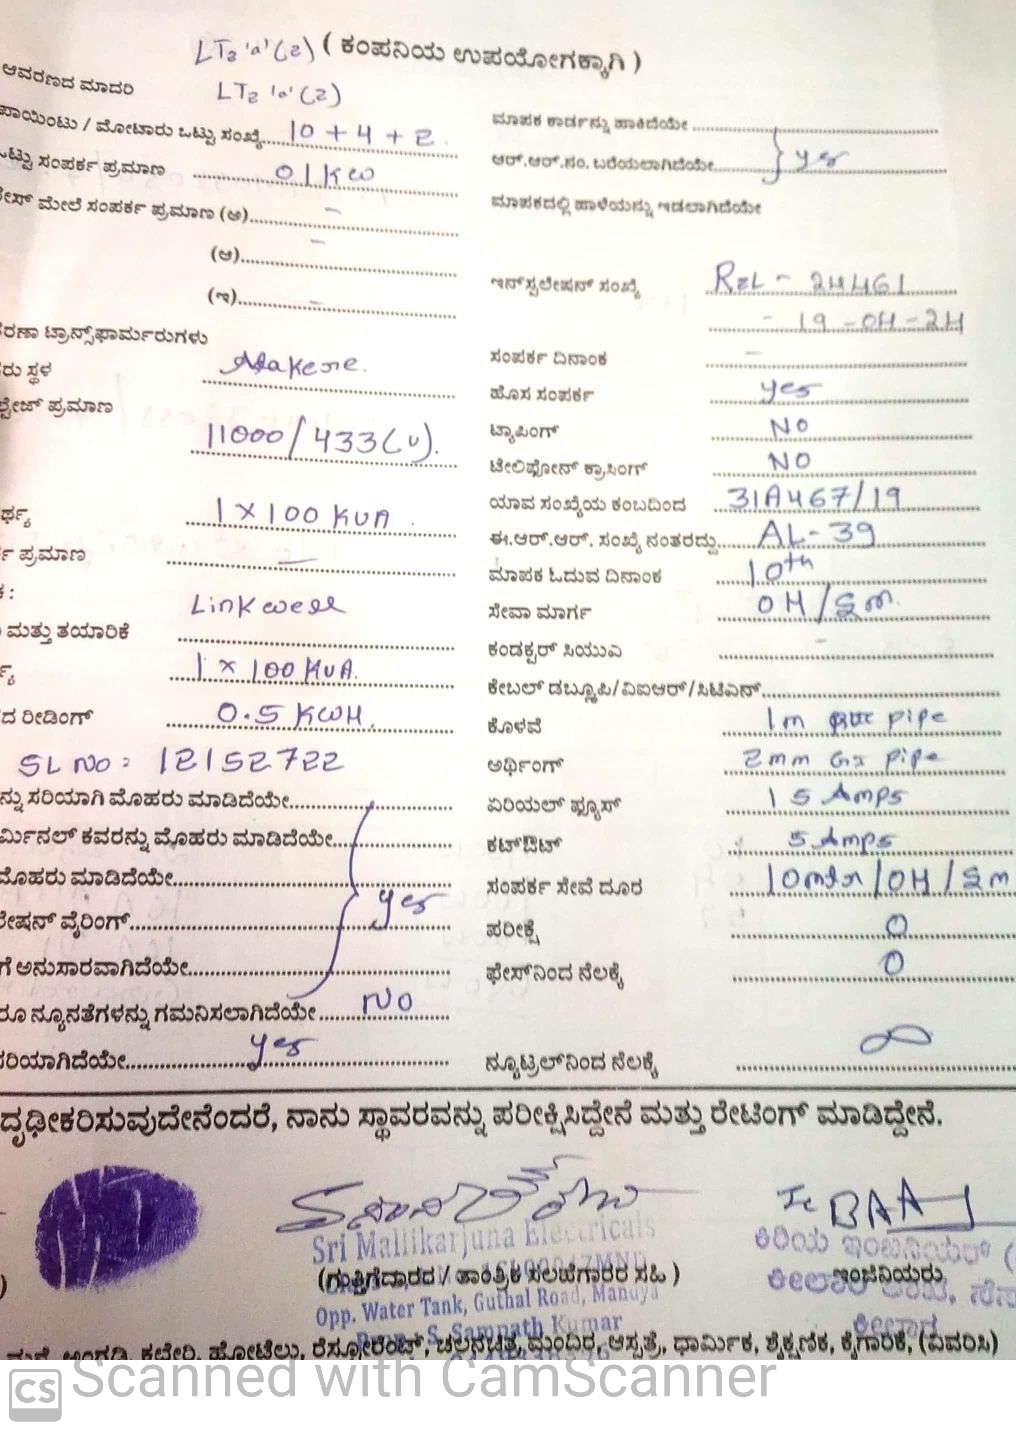 LT2 'a' (2) ( ಕಂಪನಿಯ ಉಪಯೋಗಕ್ಕಾಗಿ )
ಆವರಣದ ಮಾದರಿ LT2 'a' (2)
ಪಾಯಿಂಟು / ಮೋಟಾರು ಒಟ್ಟು ಸಂಖ್ಯೆ 10 + 4 + 2
ಒಟ್ಟು ಸಂಪರ್ಕ ಪ್ರಮಾಣ 01 KW
ಮೇಲೆ ಸಂಪರ್ಕ ಪ್ರಮಾಣ (ಅ) –
(ಆ) –
(ಇ) –
ಟ್ರಾನ್ಸ್‌ಫಾರ್ಮರುಗಳು
ಸ್ಥಳ
ಪ್ರಮಾಣ
11000 / 433 (V).
1 X 100 KVA
ಪ್ರಮಾಣ –
Linkwell
ಮತ್ತು ತಯಾರಿಕೆ
1 x 100 KVA.
ರೀಡಿಂಗ್ 0.5 KWH.
SL No: 12152722
ಸರಿಯಾಗಿ ಮೊಹರು ಮಾಡಿದೆಯೇ
ಕವರನ್ನು ಮೊಹರು ಮಾಡಿದೆಯೇ
ಮೊಹರು ಮಾಡಿದೆಯೇ
ವೈರಿಂಗ್ yes
ಅನುಸಾರವಾಗಿದೆಯೇ
ನ್ಯೂನತೆಗಳನ್ನು ಗಮನಿಸಲಾಗಿದೆಯೇ No
ಸರಿಯಾಗಿದೆಯೇ yes
ಮಾಪಕ ಕಾರ್ಡನ್ನು ಹಾಕಿದೆಯೇ
ಆರ್.ಆರ್.ನಂ. ಬರೆಯಲಾಗಿದೆಯೇ yes
ಮಾಪಕದಲ್ಲಿ ಹಾಳೆಯನ್ನು ಇಡಲಾಗಿದೆಯೇ
ಇನ್‌ಸ್ಟಲೇಷನ್ ಸಂಖ್ಯೆ RZL – 24461
- 19 - 04 - 24
ಸಂಪರ್ಕ ದಿನಾಂಕ –
ಹೊಸ ಸಂಪರ್ಕ yes
ಟ್ಯಾಪಿಂಗ್ NO
ಟೇಲಿಫೋನ್ ಕ್ರಾಸಿಂಗ್ NO
ಯಾವ ಸಂಖ್ಯೆಯ ಕಂಬದಿಂದ 31A467/19
ಈ.ಆರ್.ಆರ್. ಸಂಖ್ಯೆ ನಂತರದ್ದು AL-39
ಮಾಪಕ ಓದುವ ದಿನಾಂಕ 10th
ಸೇವಾ ಮಾರ್ಗ OH /
ಕಂಡಕ್ಟರ್ ಸಿಯುವಿ –
ಕೇಬಲ್ ಡಬ್ಲ್ಯೂಪಿ/ವಿಐಆರ್/ಸಿಟಿಎನ್
ಕೊಳವೆ 1m pipe
ಅರ್ಥಿಂಗ್ 2mm GI Pipe
ಏರಿಯಲ್ ಫ್ಯೂಸ್ 15 Amps
ಕಟ್‌ಔಟ್ 5 Amps
ಸಂಪರ್ಕ ಸೇವೆ ದೂರ /OH/
ಪರೀಕ್ಷೆ 0
ಫೇಸ್‌ನಿಂದ ನೆಲಕ್ಕೆ 0
ನ್ಯೂಟ್ರಲ್‌ನಿಂದ ನೆಲಕ್ಕೆ ∞
ದೃಢೀಕರಿಸುವುದೇನೆಂದರೆ, ನಾನು ಸ್ಥಾವರವನ್ನು ಪರೀಕ್ಷಿಸಿದ್ದೇನೆ ಮತ್ತು ರೇಟಿಂಗ್ ಮಾಡಿದ್ದೇನೆ.
Sri Mallikarjuna Electricals
ಕಿರಿಯ ಇಂಜಿನಿಯರ್
(ಗುತ್ತಿಗೆದಾರರ / ತಾಂತ್ರಿಕ ಸಲಹೆಗಾರರ ಸಹಿ )
ಇಂಜಿನಿಯರು
Opp. Water Tank, Guthal Road, Mandya
S. Sampath Kumar
ಅಂಗಡಿ, ಕಛೇರಿ, ಹೋಟೆಲು, ರೆಸ್ಟೋರೆಂಟ್, ಚಲನಚಿತ್ರ, ಮಂದಿರ, ಆಸ್ಪತ್ರೆ, ಧಾರ್ಮಿಕ, ಶೈಕ್ಷಣಿಕ, ಕೈಗಾರಿಕೆ, (ವಿವರಿಸಿ)
CS Scanned with CamScanner